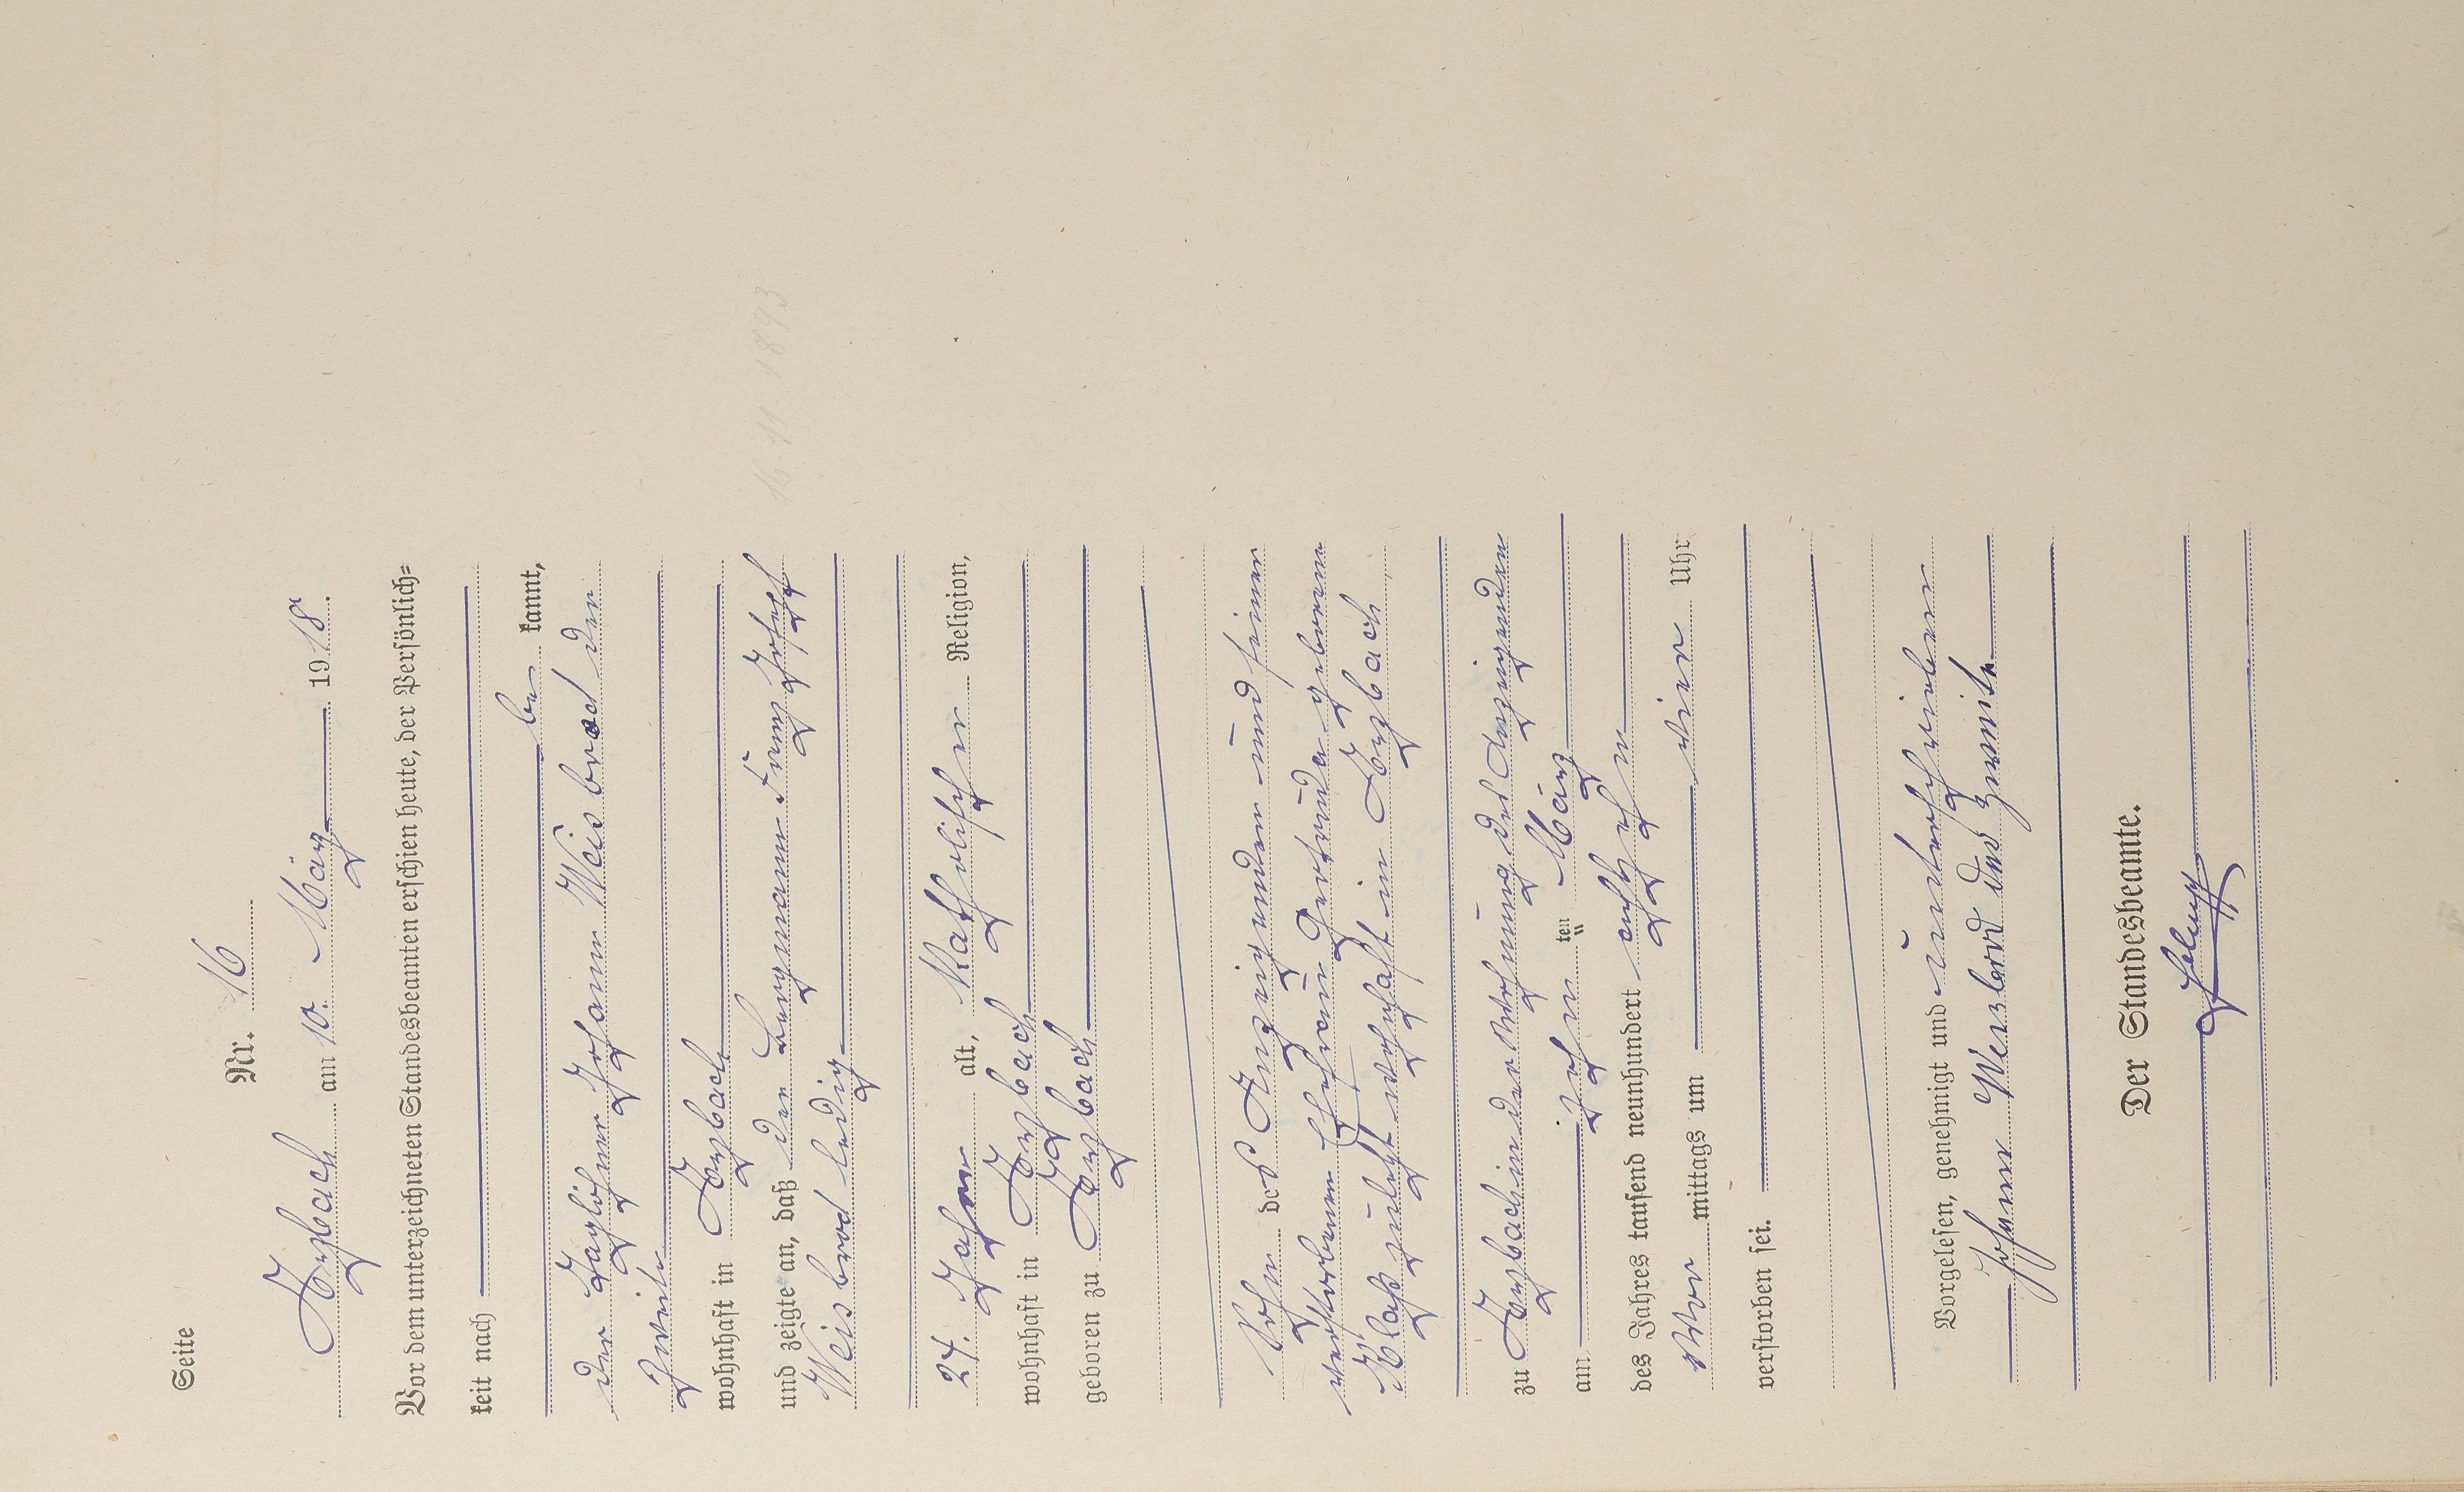 Seite
Nr. 16
Itzbach am 10. März 1918.
Vor dem unterzeichneten Standesbeamten erschien heute, der Persönlich=
keit nach
be kannt,
der Taglöhner Johann Weisbrod der
Zweite
wohnhaft in Itzbach
und zeigte an, daß der Bergmann Franz Josef
16.11.1893
Weisbrod ledig
24. Jahre alt, Katholischer Religion,
wohnhaft in Itzbach
geboren zu Itzbach
Sohn des Anzeigenden und seiner
verstorbenen Ehefrau Gertruda geborene
zuletzt wohnhaft in Itzbach
zu Itzbach in der Wohnung des Anzeigenden
am zehn ten März
des Jahres tausend neunhundert achtzehn
Vor mittags um vier Uhr
verstorben sei.
Vorgelesen, genehmigt und unterschrieben
Johann Weisbrod der Zweite
Der Standesbeamte.